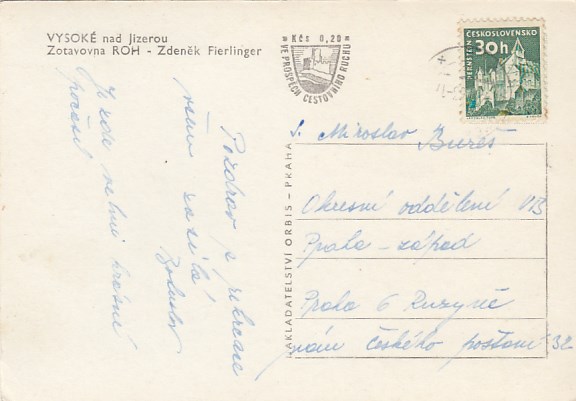 VYSOKÉ nad Jizerou
Zotavovna ROH - Zdeněk Fierlinger
Kčs 0,20
VE PROSPĚCH CESTOVNÍHO RUCHU
ČESKOSLOVENSKO
30h
PERNŠTEJN
NAKLADATELSTVÍ ORBIS - PRAHA
Pozdrav z rekreace
všem zasílá
Je zde velmi krásné
počasí
S. Miroslav Bureš
Okresní oddělení VB
Praha - západ
Praha 6 Ruzyně
nám českého povstání 32